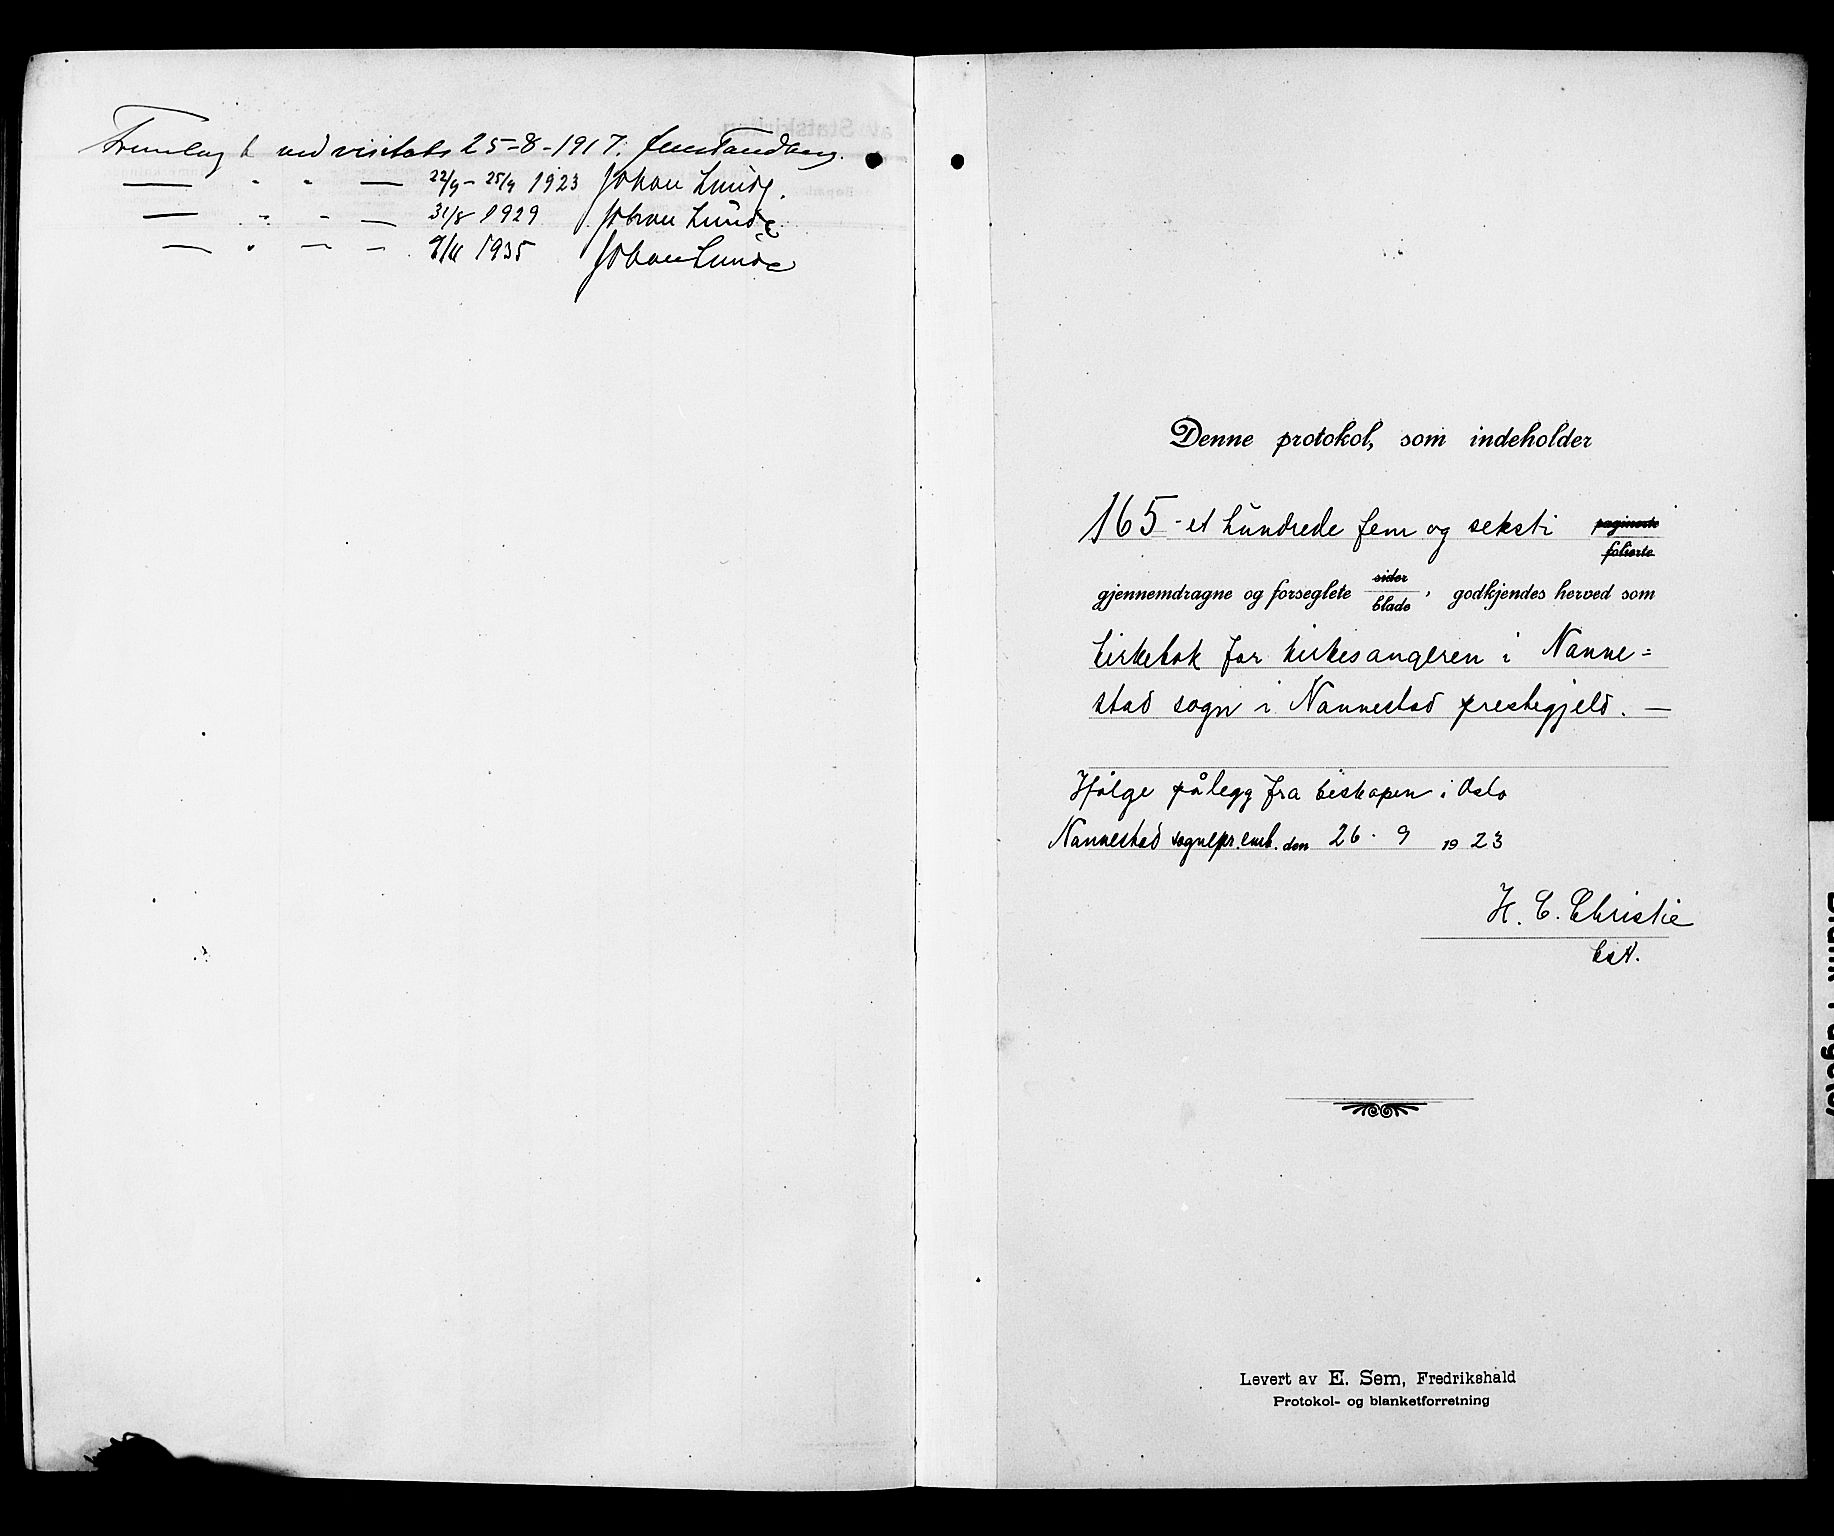 Fremlagt ved visitats 25-8-1917. Jens Tandberg.
— " " — 22/9 - 25/9 1923 Johan Lunde.
— " " — 31/8 1929 Johan Lunde
— " — — 1935 Johan Lunde
Denne protokol, som indeholder
165 - et hundrede fem og seksti paginerte
folierte
gjennemdragne og forseglete sider
blade, godkjendes herved som
kirkebok for kirkesangeren i Nanne=
stad sogn i Nannestad prestegjeld. —
Ifølge pålegg fra biskopen i Oslo
Nannestad sognepr.emb. den 26. 9 1923
H. C. Christie
bst.
Levert av E. Sem, Fredrikshald
Protokol- og blanketforretning